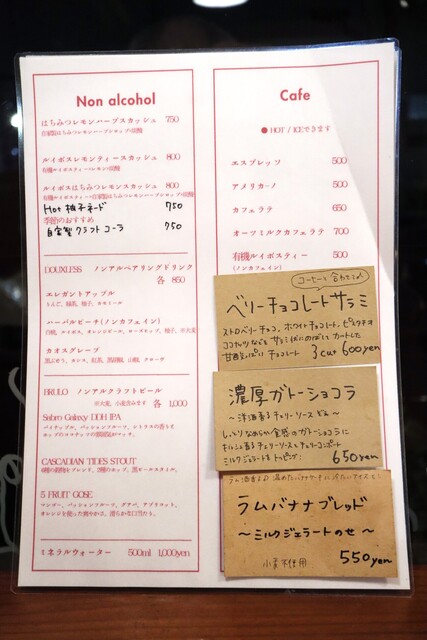 Non alcohol
はちみつレモンハーブスカッシュ 750
自家製はちみつレモンハーブシロップ×炭酸
ルイボスレモンティースカッシュ 800
有機ルイボスティー×レモン×炭酸
ルイボスはちみつレモンスカッシュ 800
Hot 柚子ネード 750
季節のおすすめ
自家製クラフトコーラ 750
DOUXLESS ノンアルペアリングドリンク
各 850
エレガントアップル
ハーバルピーチ(ノンカフェイン)
カオスグレープ
BRULO ノンアルクラフトビール
※大麦、小麦含みます 各 1,000
Sabro Galaxy DDH IPA
パイナップル、パッションフルーツ、シトラスの香りを
CASCADIAN TIDES STOUT
5 FRUIT GOSE
マンゴー、パッションフルーツ、グアバ、アプリコット、
オレンジを使った鮮やかさ、滑らかな口当たり。
ミネラルウォーター 500ml 1,000yen
Cafe
● HOT / ICEできます
エスプレッソ 500
アメリカーノ 500
カフェラテ 650
オーツミルクカフェラテ 700
有機ルイボスティー 500
(ノンカフェイン)
コーヒーと合わせて♪
ベリーチョコレートサラミ
ストロベリーチョコ、ホワイトチョコレート、ピスタチオ
ココナッツなどをサラミ状にのばしてカットした
甘酸っぱい チョコレート 3cut 600yen
濃厚ガトーショコラ
〜洋酒香るチェリーソース ぞえ〜
しっとりなめらか食感のガトーショコラに
キルシュ香るチェリーソースとチェリーコンポート
ミルクジェラートをトッピング 650yen
ラムバナナブレッド
〜ミルクジェラートのせ〜
小麦不使用 550yen